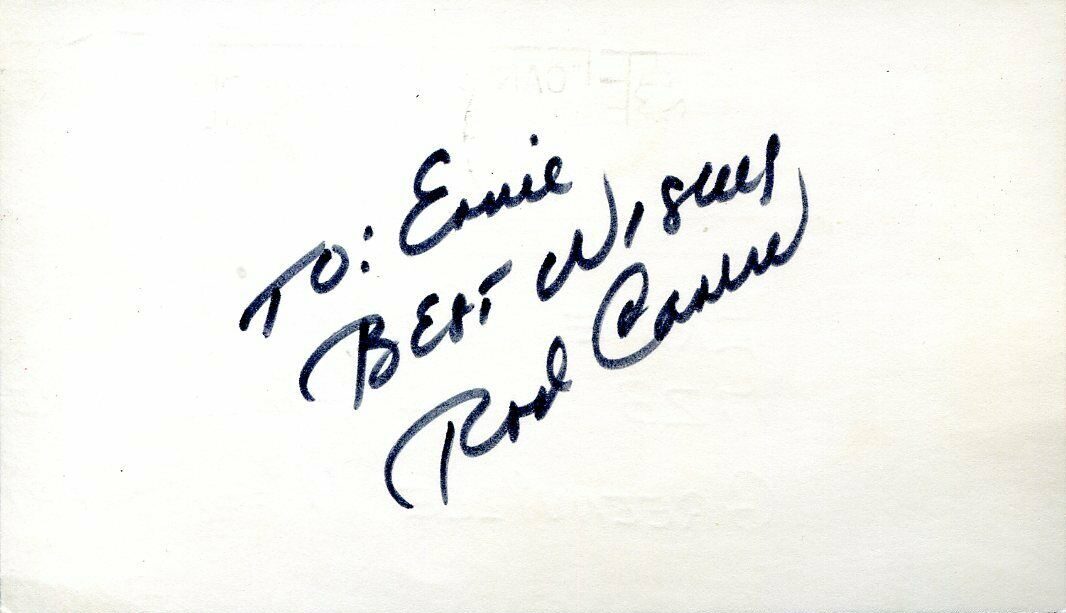 To: Ernie
Best Wishes
Rod Carew